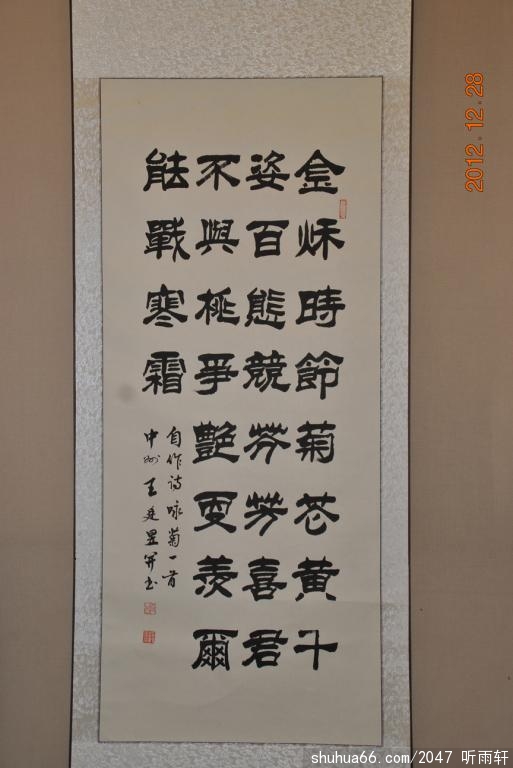 金秌時節菊花黄千
姿百態競芬芳喜君
不與桃爭艷更羨爾
能戰寒霜
自作诗咏菊一首
中州王廷星并书
2012.12.28
shuhua66.com/2047 听雨轩